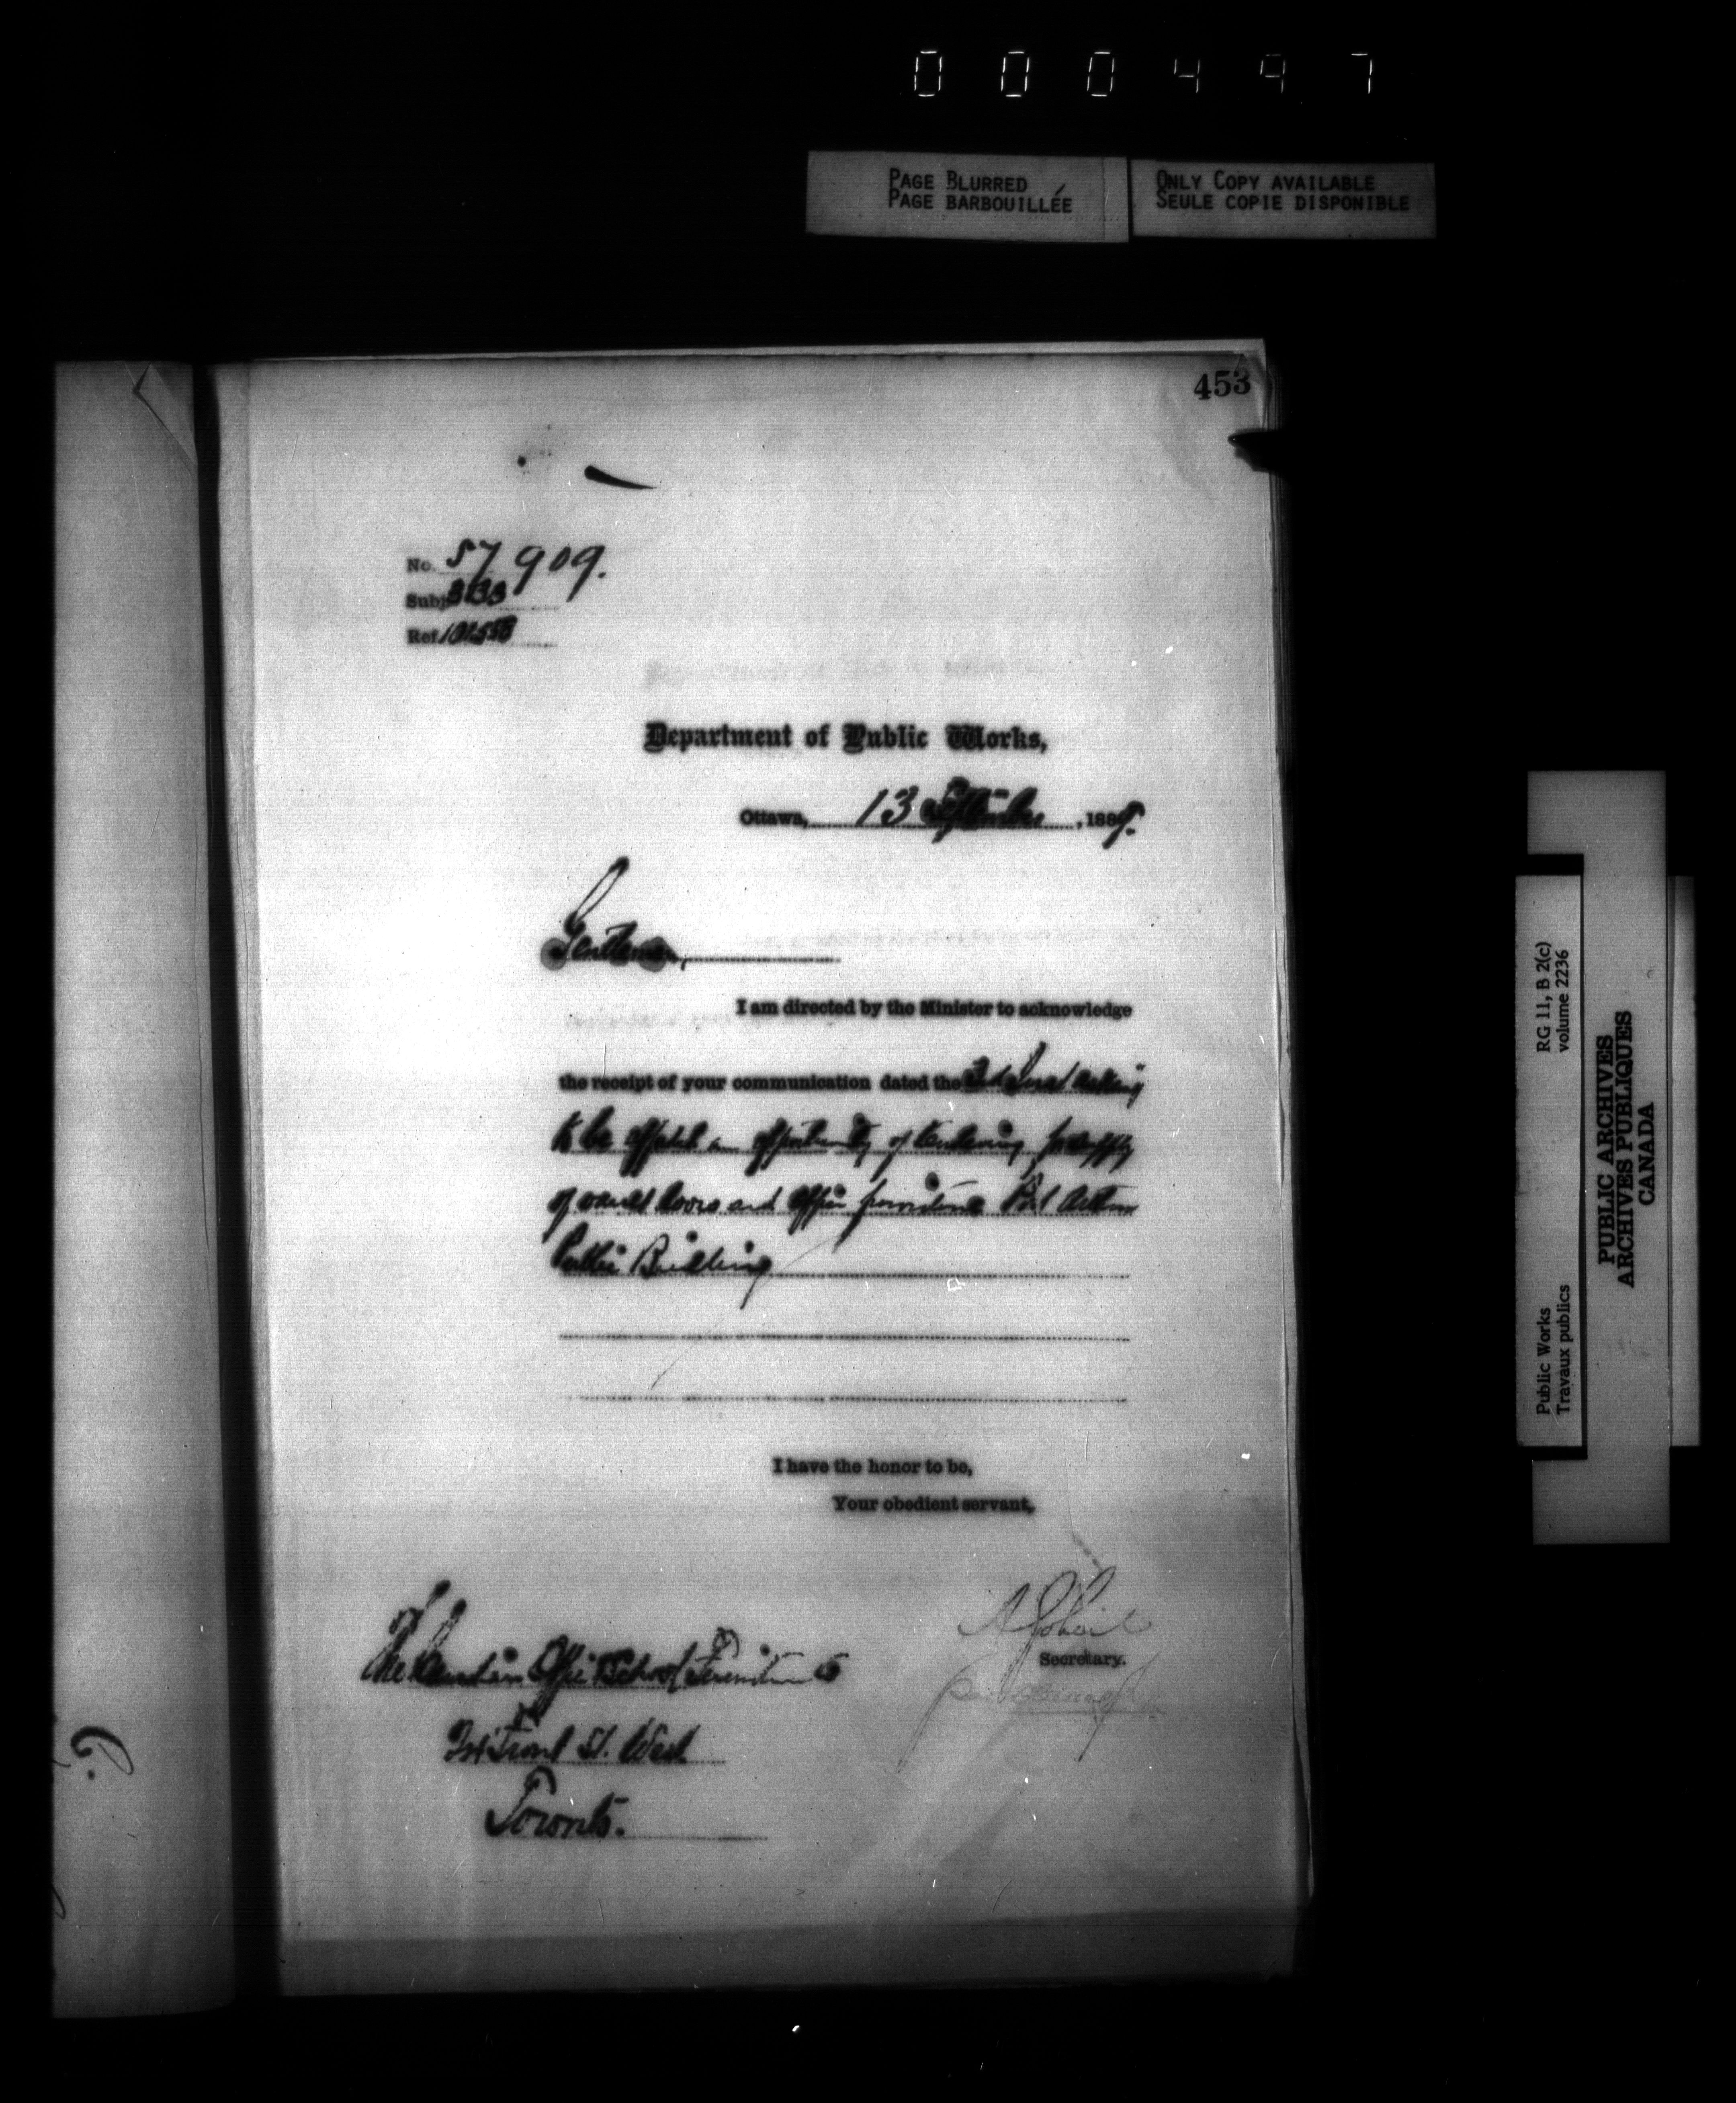 000497
PAGE BLURRED
PAGE BARBOUILLÉE
ONLY COPY AVAILABLE
SEULE COPIE DISPONIBLE
453
No. 57909.
Subj.
Ref.
Department of Public Works,
Ottawa, 13 September, 1889.
Gentlemen,
I am directed by the Minister to acknowledge
the receipt of your communication dated the 3rd Inst asking
to be afforded an opportunity of tendering for supply
of vault doors and office furniture Port Arthur
Public Building
I have the honor to be,
Your obedient servant,
A Gobeil
Secretary.
The Canadian Office & School Furniture Co
Front St. West
Toronto.
Public Works
Travaux publics
RG 11, B 2(c)
volume 2236
PUBLIC ARCHIVES
ARCHIVES PUBLIQUES
CANADA